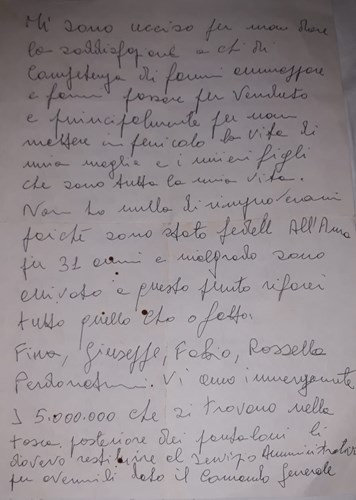 Mi sono ucciso per non dare
la soddisfazione a chi di
Competenza di farmi ammazzare
e farmi passare per Venduto
e principalmente per non
mettere in pericolo la vita di
mia moglie e i miei figli
che sono tutta la mia vita.
Non ho nulla di rimproverarmi
poichè sono stato fedell All'Arma
per 31 anni e malgrado sono
arrivato a questo punto rifarei
tutto quello che o fatto.
Fina, Giuseppe, Fabio, Rossella
Perdonatemi. Vi amo immensamente
5.000.000 che si trovano nella
tasca posteriore dei pantaloni li
dovevo restituire al servizio Amministrativo
per avermili dato il Comando Generale